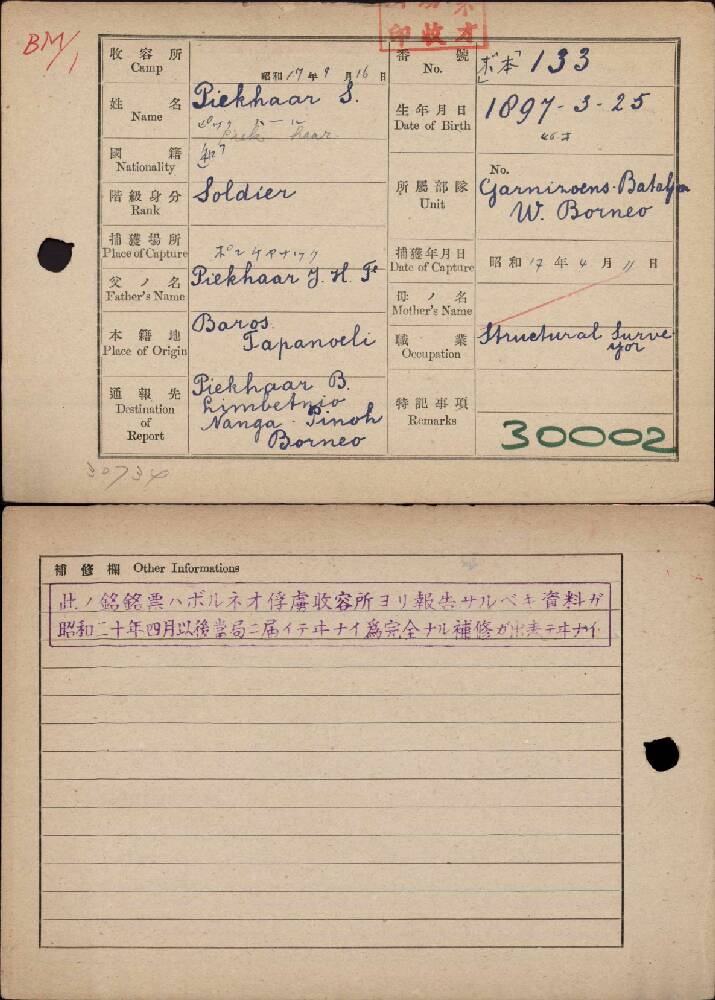 BM/1
収容所 Camp
昭和17年9月16日
番號 No.
ボ本 133
姓名 Name
Piekhaar S.
Piek haar
生年月日 Date of Birth
1897-3-25
國籍 Nationality
階級身分 Rank
Soldier
所屬部隊 Unit
No.
Garnizoens-Bataljon
W. Borneo
捕獲場所 Place of Capture
ポンチアナック
捕獲年月日 Date of Capture
昭和17年4月11日
父ノ名 Father's Name
Piekhaar J. H. F.
母ノ名 Mother's Name
本籍地 Place of Origin
Baros
Tapanoeli
職業 Occupation
Structural Surve-
yor
通報先 Destination of Report
Piekhaar B.
Nanga-Pinoh
Borneo
特記事項 Remarks
30002
30734
補修欄 Other Informations
此ノ銘銘票ハボルネオ俘虜収容所ヨリ報告サルベキ資料ガ
昭和二十年四月以後當局ニ届イテヰナイ爲完全ナル補修ガ出来テヰナイ